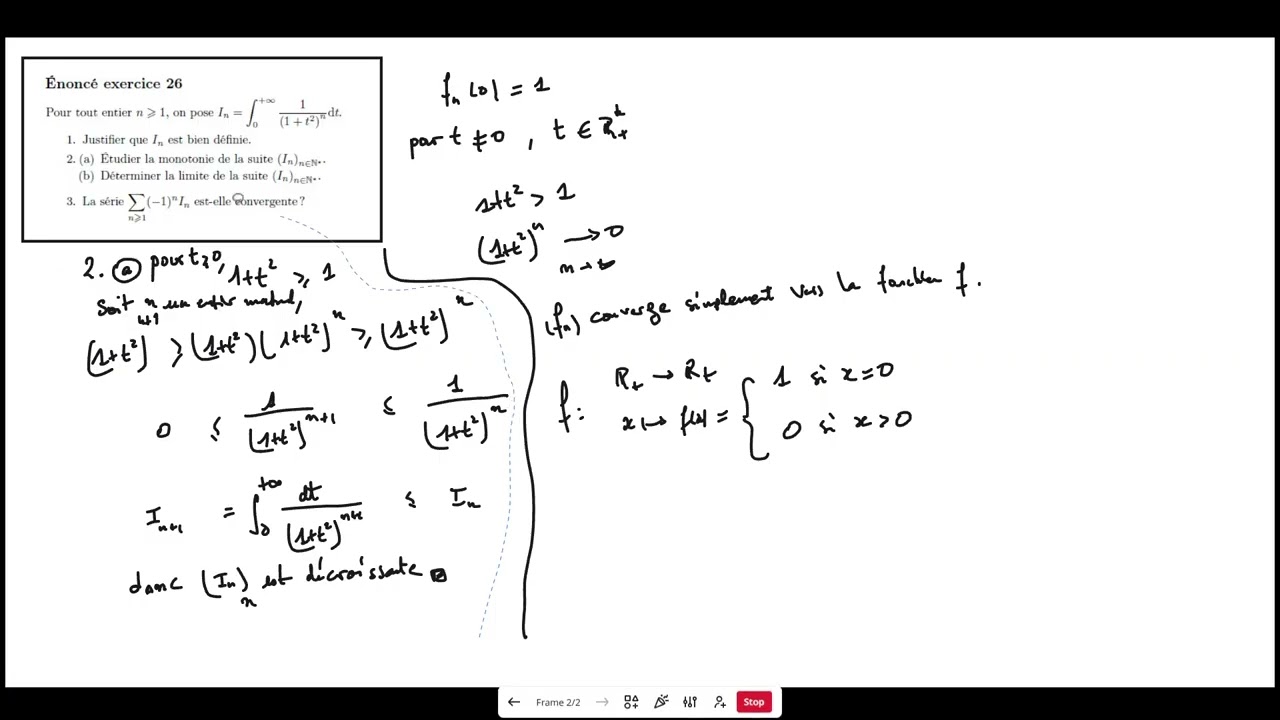 Énoncé exercice 26
Pour tout entier n ⩾ 1, on pose Iₙ = ∫₀^{+∞} 1/(1 + t²)ⁿ dt.
1. Justifier que Iₙ est bien définie.
2. (a) Étudier la monotonie de la suite (Iₙ)ₙ∈ℕ*.
(b) Déterminer la limite de la suite (Iₙ)ₙ∈ℕ*.
3. La série ∑_{n⩾1} (−1)ⁿIₙ est-elle convergente ?
2. ⓐ pour t ⩾ 0, 1+t² ⩾ 1
Soit n un entier naturel,
(1+t²)^{n+1} ⩾ (1+t²)(1+t²)ⁿ ⩾ (1+t²)ⁿ
0 ≤ 1/(1+t²)^{n+1} ≤ 1/(1+t²)ⁿ
I_{n+1} = ∫₀^{+∞} dt/(1+t²)^{n+1} ≤ Iₙ
donc (Iₙ)ₙ est décroissante
fₙ(0) = 1
pour t ≠ 0 , t ∈ ℝ₊*
1+t² > 1
(1+t²)ⁿ → 0
n → +∞
(fₙ) converge simplement vers la fonction f.
f : ℝ₊ → ℝ₊
x ↦ f(x) = { 1 si x=0
0 si x>0
Frame 2/2
Stop